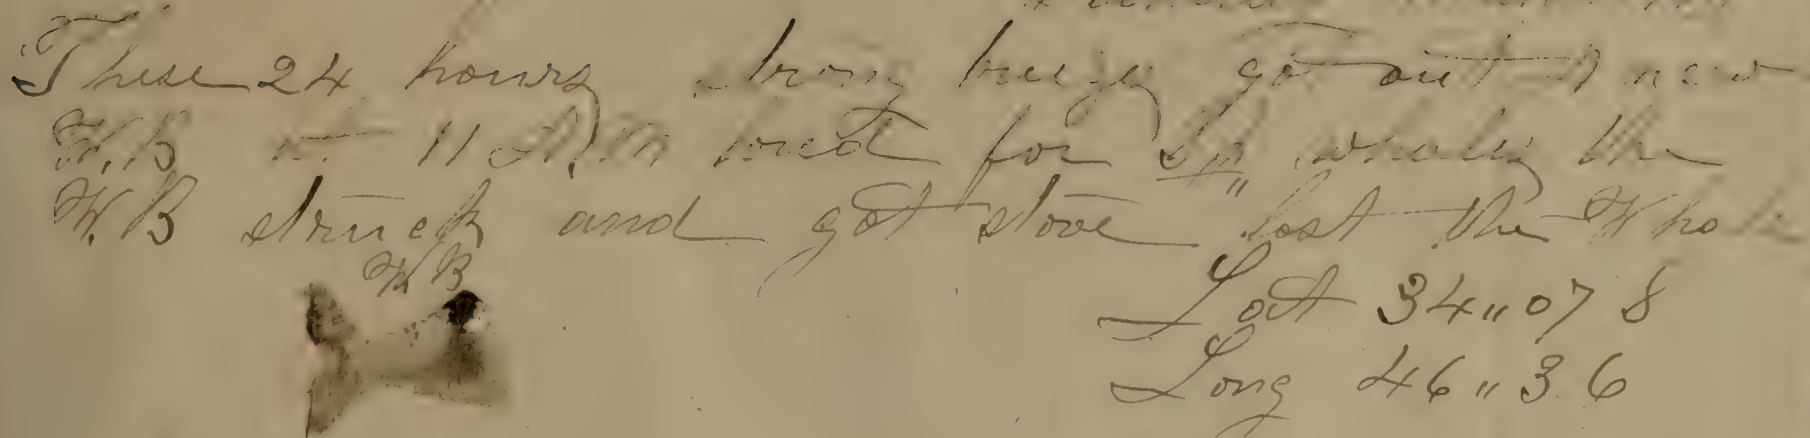 These 24 hours strong breeze got out A new
W.B at 11 A.M lowed for Sp" whales the
W.B struck and got stove lost the Whale
W B
Lat 34"07 S
Long 46"36